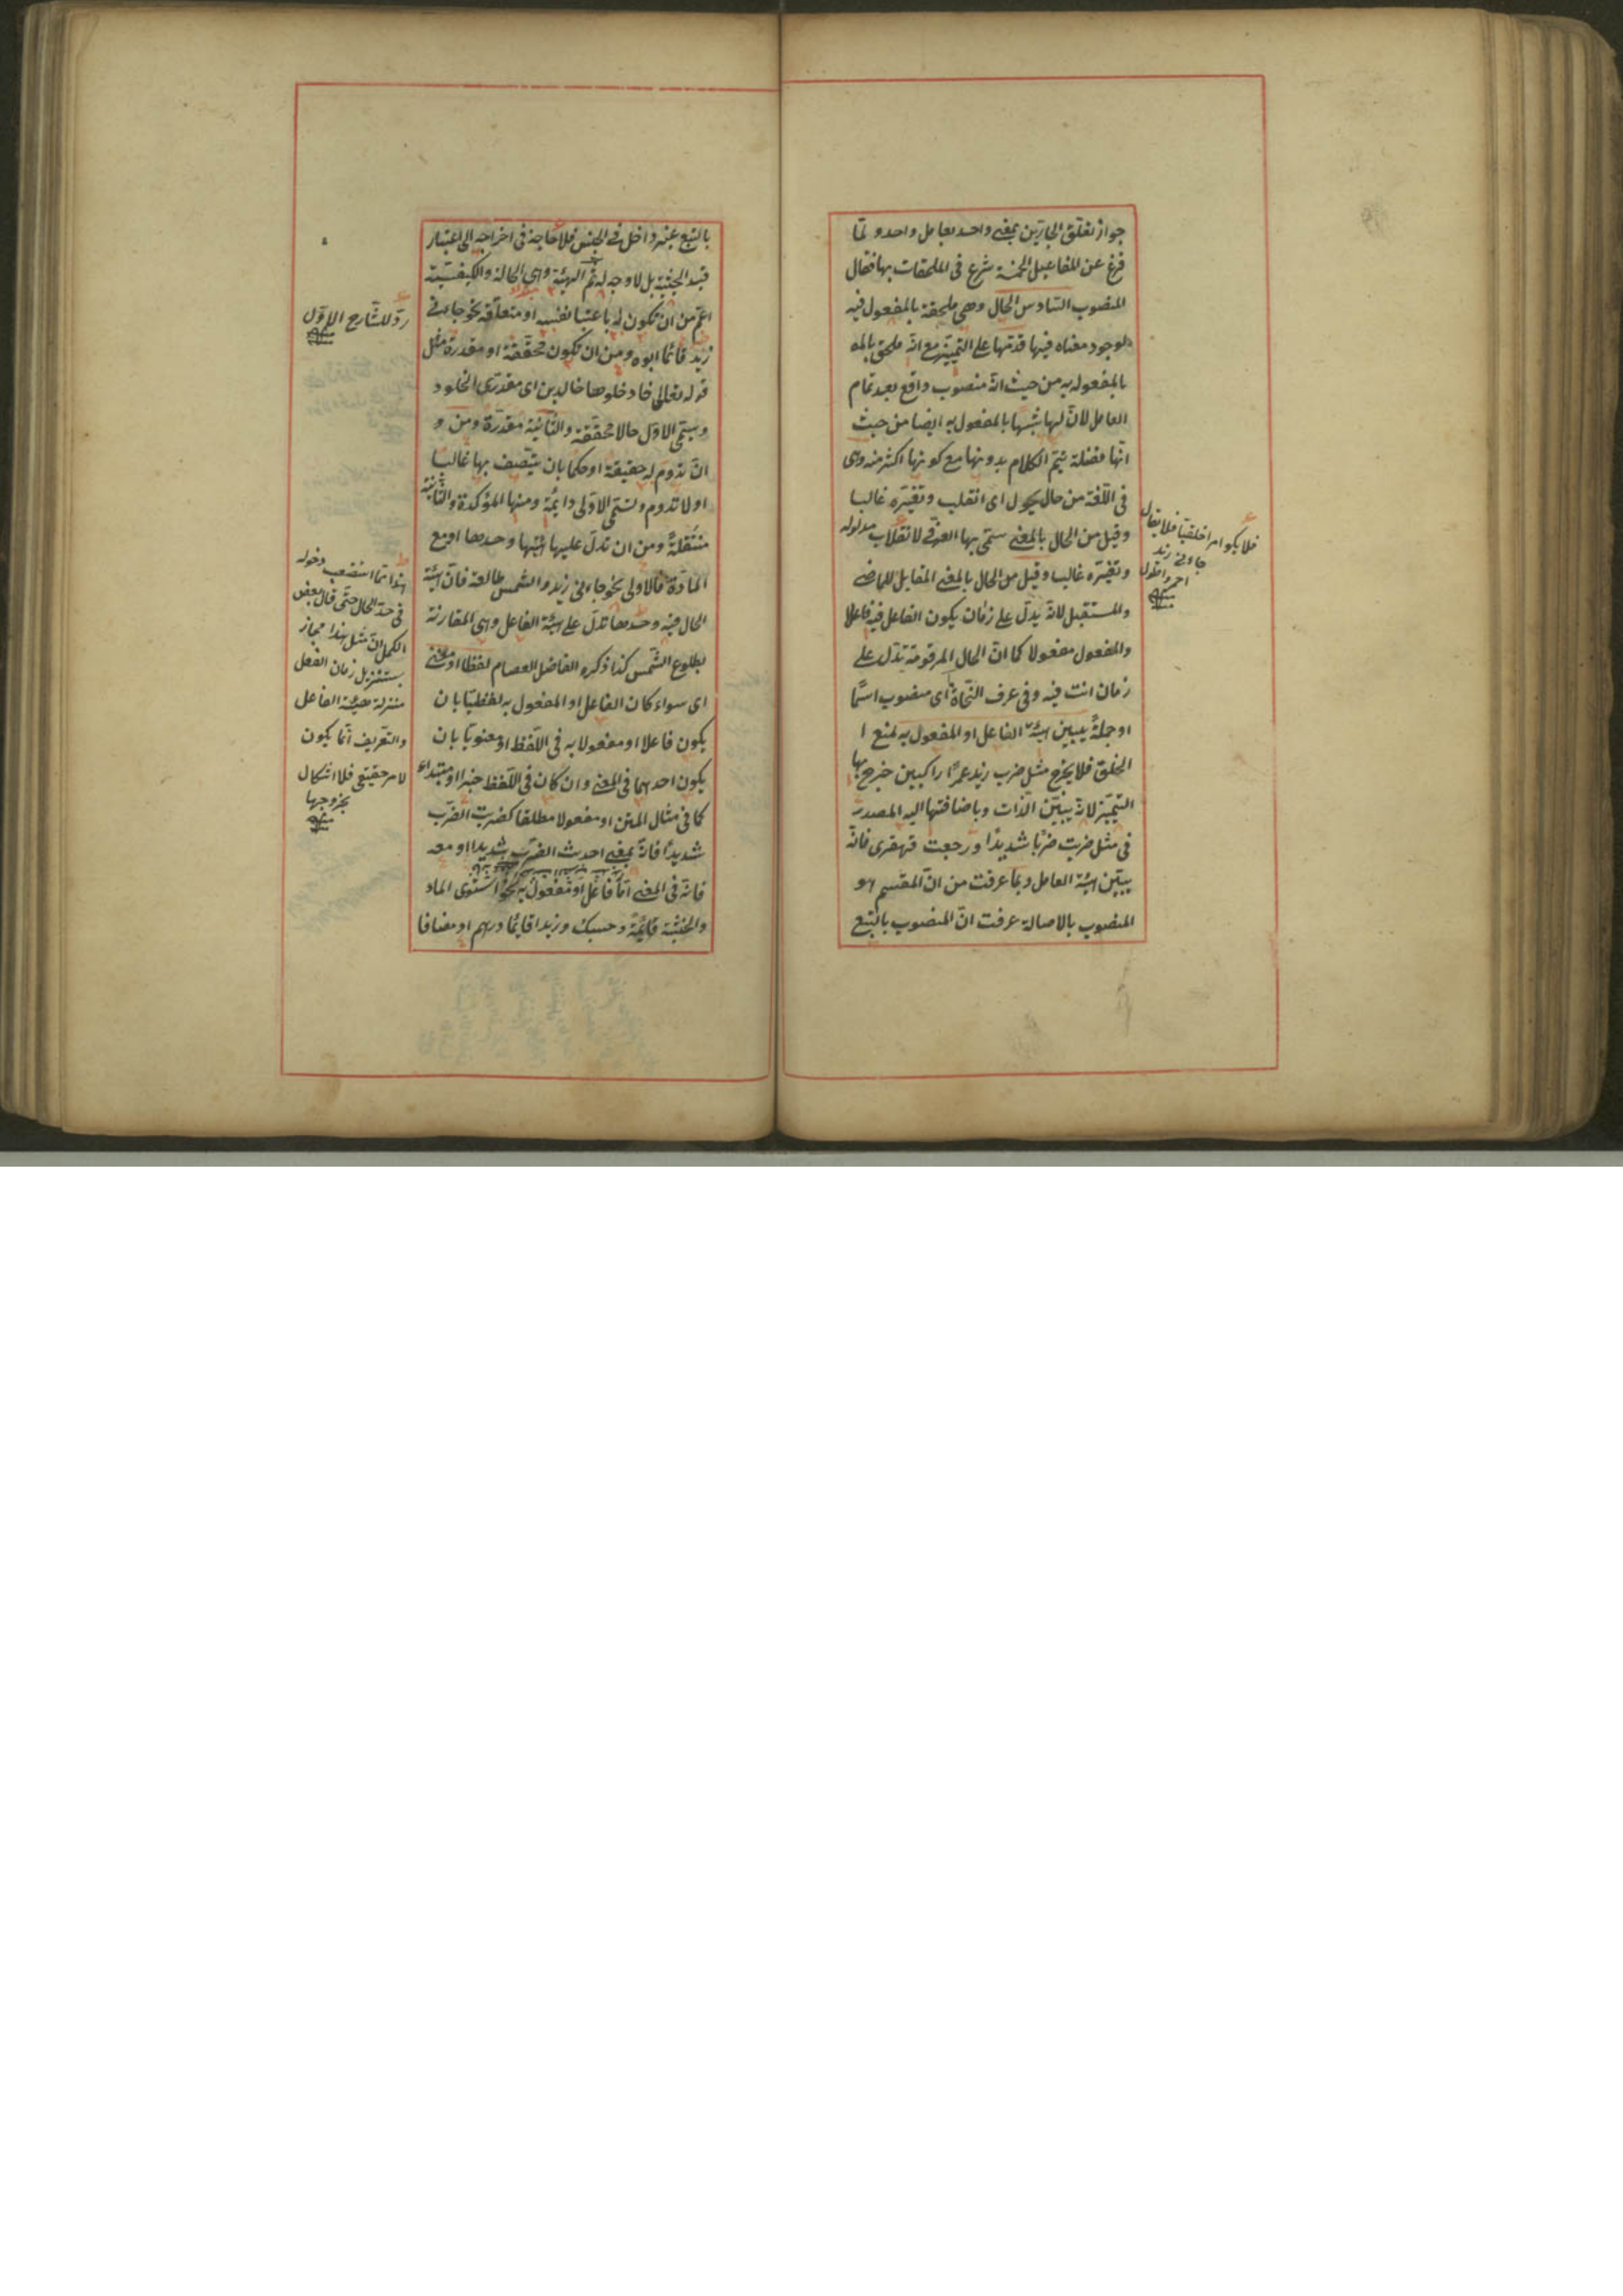 جواز تعلق الجارين بمعنى واحد بعامل واحد ولما
فرغ عن المفاعيل الخمسة شرع في الملحقات بها فقال
المنصوب السادس الحال وهي ملحقة بالمفعول فيه
لوجود معناه فيها قدمها على التمييز مع انه ملحق بالمه
بالمفعول به من حيث انه منصوب واقع بعد تمام
العامل لان لها شبها بالمفعول به ايضا من حيث
انها فضلة يتم الكلام بدونها مع كونها اكثر منه وهى
في اللغة من حال يحول اى انقلب وتغيره غالبا
وقيل من الحال بالمعنى سمى بها العرفي لانقلاب مدلوله
وتغيره غالبا وقيل من الحال بالمعنى المقابل للماضي
والمستقبل لانه يدل على زمان يكون الفاعل فيه فاعلا
والمفعول مفعولا كما ان الحال المرقومة تدل على
زمان انت فيه وفي عرف النحاة اى منصوب اسما
او جملة يبين هيئة الفاعل او المفعول به لمنع ا
الخلق فلا يخرج مثل ضرب زيد عمرا راكبين خرج بها
التميز لانه يبين الذات وباضافتها اليه المصدر
في مثل ضربت ضربا شديدا ورجعت قهقرى فانه
يبين هيئة العامل وبما عرفت من ان المقسم هو
المنصوب بالاصالة عرفت ان المنصوب بالتبع
فلا يكو امرا خلقيا فلا يقال
جاءني زيد
احمر واطول
منه
بالتبع غير داخل في الجنس فلا حاجة في اخراجه الى اعتبار
قيد الحيثية بل لا وجه له ثم الهيئة وهي الحالة والكيفية
اعم من ان تكون له باعتبا نفسه او متعلقه نحو جاءني
زيد قائما ابوه ومن ان تكون محققة او مقدرة مثل
قوله تعالى فادخلوها خالدين اى مقدرى الخلود
ويسمى الاول حالا محققة والثانية مقدرة ومن و
ان تدوم له حقيقة او حكما بان يتصف بها غالبا
او لا تدوم وتسمى الاولى دايمة ومنها المؤكدة والثانية
منتقلة ومن ان تدل عليها هيئتها وحدها او مع
المادة فالاولى نحو جاءني زيد والشمس طالعة فان هيئة
الحال فيه وحدها تدل على هيئة الفاعل وهي المقارنة
بطلوع الشمس كذا ذكره الفاضل العصام لفظا او معنى
اى سواء كان الفاعل او المفعول به لفظيا بان
يكون فاعلا او مفعولا به في اللفظ او معنويا بان
يكون احدهما في المعنى وان كان في اللفظ خبرا او مبتداء
كما في مثال المتن او مفعولا مطلقا كضربت الضرب
شديدا فانه بمعنى احدث الضرب شديدا او معه
فانه في المعنى اما فاعل او مفعول به نحو استوى الماء
والخشبة قائمة وحسبك وزيدا قائما درهم او مضافا
رد للشارح الاول
منه
هذا مما استصعب دخوله
في حد الحال حتى قال بعض
الكمل ان مثل هذا مجاز
بتنزيل زمان الفعل
منزلة هيئة الفاعل
والتعريف انما يكون
لامر حقيقي فلا اشكال
بخروجها
منه